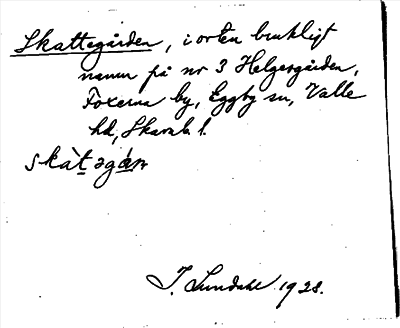 Skattegården, i orten brukligt
namn på nr 3 Helgesgården,
Foxerna by, Eggby sn, Valle
hd, Skarab. l.
skàtəgán
I. Lundahl 1928.